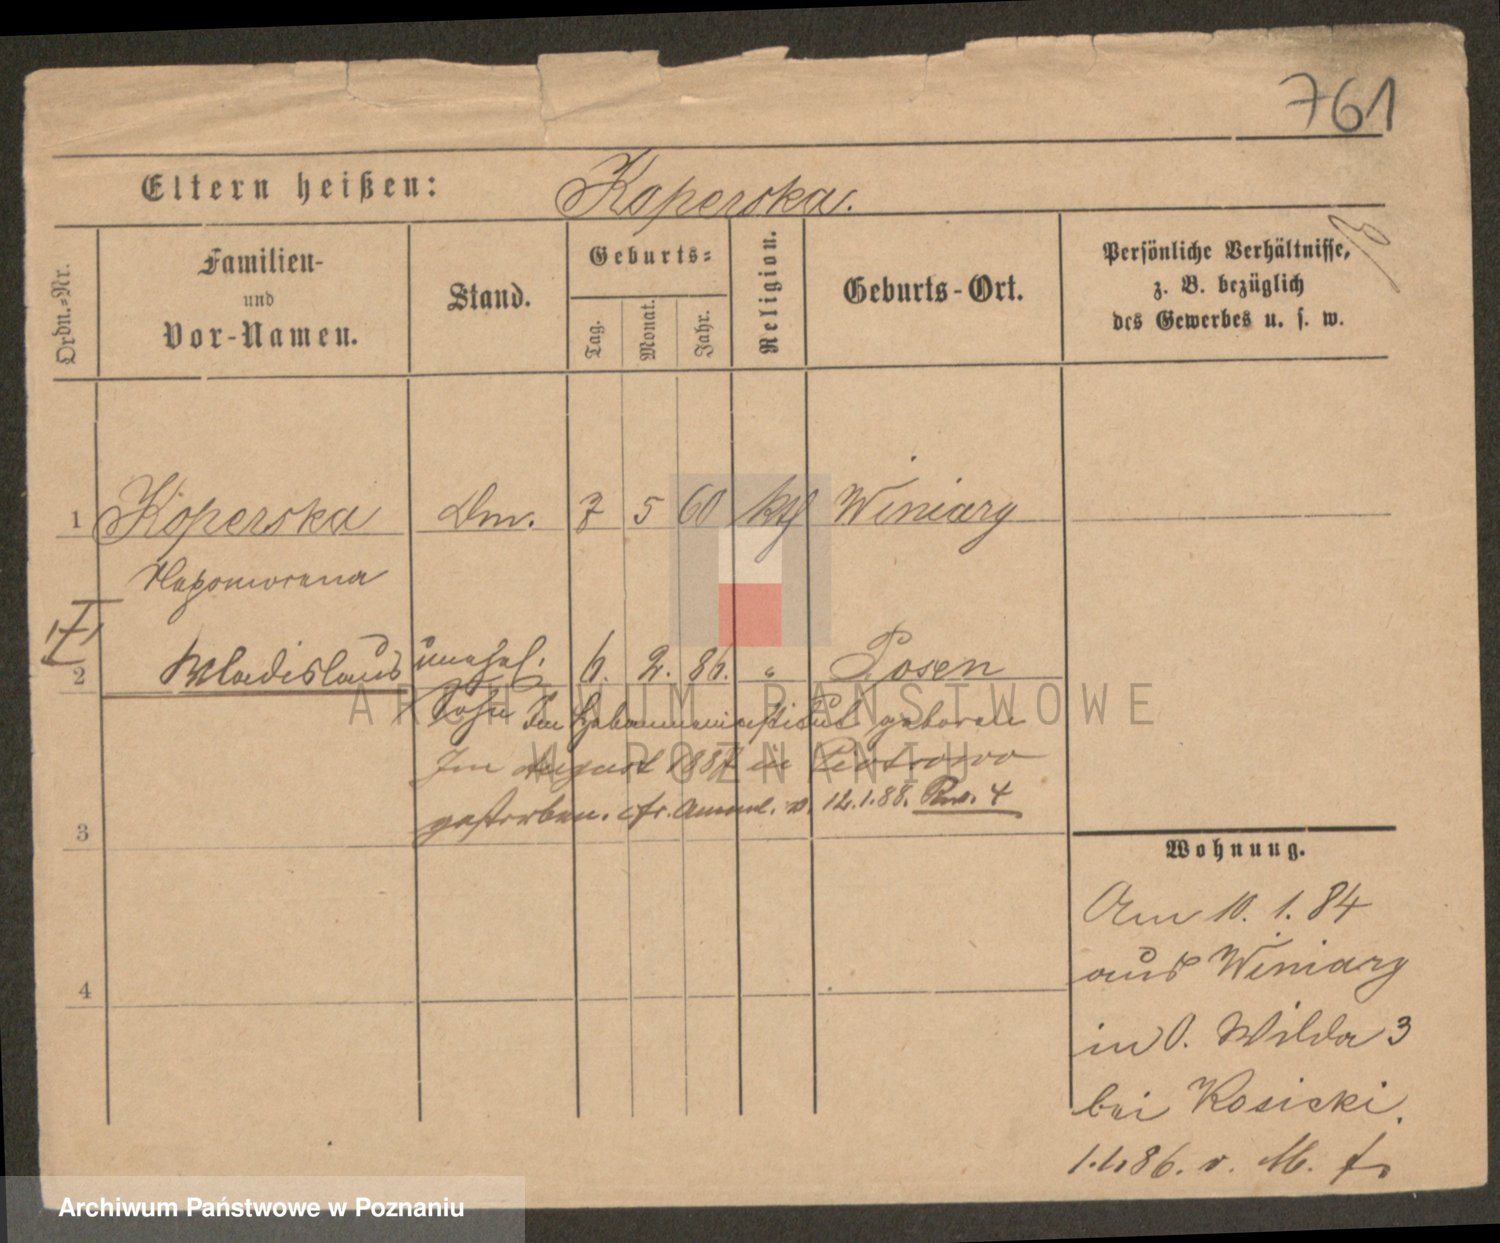 761
Eltern heißen: Koperska.
Ordn.-Nr.
Familien-
und
Vor-Namen.
Stand.
Geburts-
Tag.
Monat.
Jahr.
Religion.
Geburts-Ort.
Persönliche Verhältnisse,
z. B. bezüglich
des Gewerbes u. s. w.
1 Koperska Dm. 7 5 60 kth Winiary
Nepomocena
2 Wladislaus unehel. 6. 2. 86. " Posen
Sohn Im Hebammeninstitut geboren
Im August 1887 in Piotrowo
3 gestorben. cfr. v. 12.1.88. Rev. 4
4
Wohnung.
Am 10. 1. 84
aus Winiary
in O. Wilda 3
bei Kosicki.
1.4.86. v. M.
ARCHIWUM PAŃSTWOWE
W POZNANIU
Archiwum Państwowe w Poznaniu